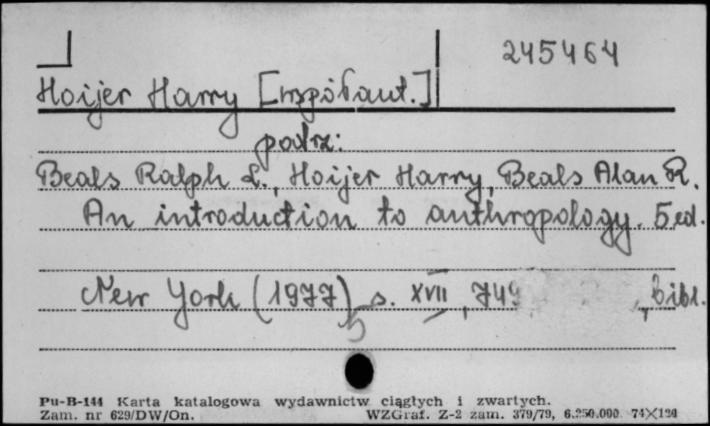 245464
Hoijer Harry [współaut.]
patrz:
Beals Ralph L., Hoijer Harry, Beals Alan R.
An introduction to anthropology. 5 ed.
New York (1977) s. XVII, 749, bibl.
Pu-B-144 Karta katalogowa wydawnictw ciągłych i zwartych.
Zam. nr 629/DW/On. WZGraf. Z-2 zam. 379/79, 6.250.000 74×124